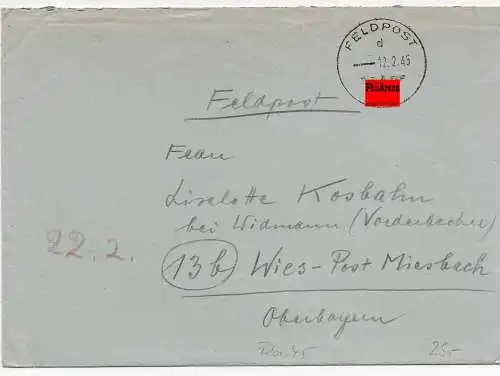 FELDPOST
d
12.2.45
PhilArena
Feldpost
Frau
Liselotte Kosbahn
bei Widmann (Vorderbacher)
22.2.
13b Wies-Post Miesbach
Oberbayern
25,-